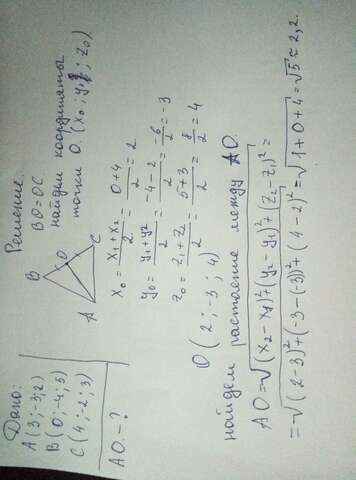 Дано:
A (3; -3; 2)
B (0; -4; 5)
C (4; -2; 3)
AO - ?
Решение.
BO = OC.
найдем координаты
точки O. (x₀; y₀; z₀)
B
O
A
C
x₀ = (x₁ + x₂)/2 = (0+4)/2 = 2.
y₀ = (y₁ + y₂)/2 = (-4-2)/2 = -6/2 = -3
z₀ = (z₁ + z₂)/2 = (5+3)/2 = 8/2 = 4
O (2; -3; 4)
найдем растояние между AO.
AO = √((x₂ - x₁)² + (y₂ - y₁)² + (z₂ - z₁)²) =
= √((2-3)² + (-3-(-3))² + (4-2)²) = √(1+0+4) = √5 ≈ 2,2.